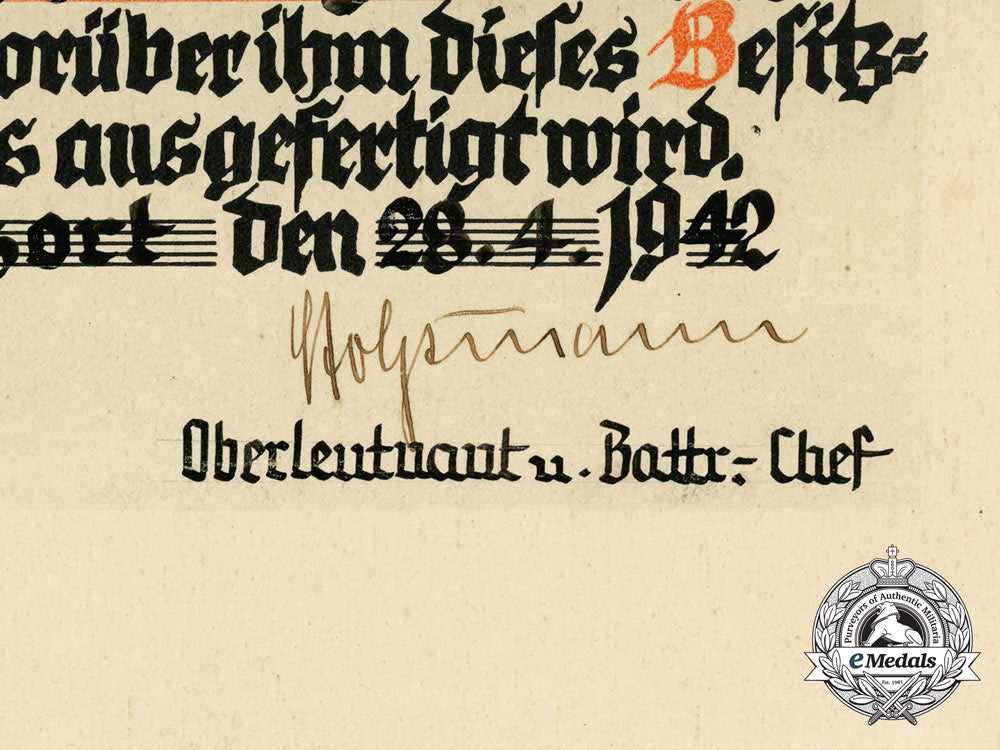 orüber ihm dieses Besitz=
s ausgefertigt wird.
ort den 28.4.1942
Holzmann
Oberleutnant u. Battr.- Chef
Purveyors of Authentic Militaria
eMedals
Est. 1981